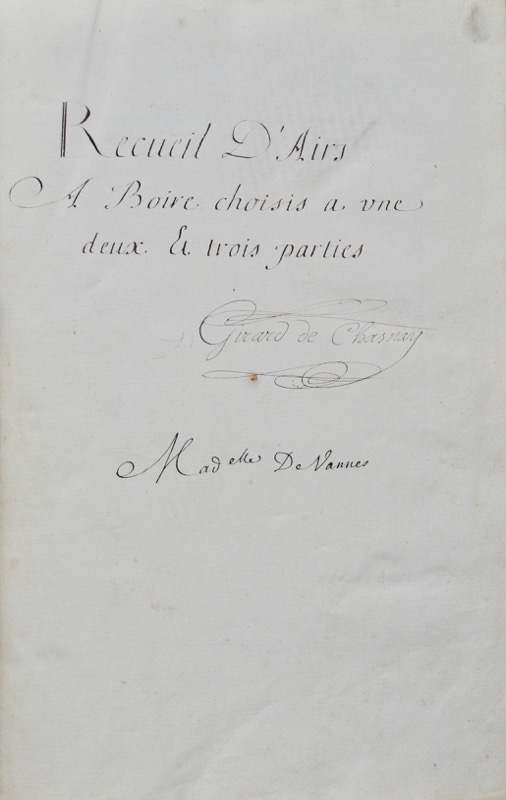 Recueil D'Airs
A Boire choisis a vne
deux & trois parties
Girard de Chasnay
Madelle De Vannes